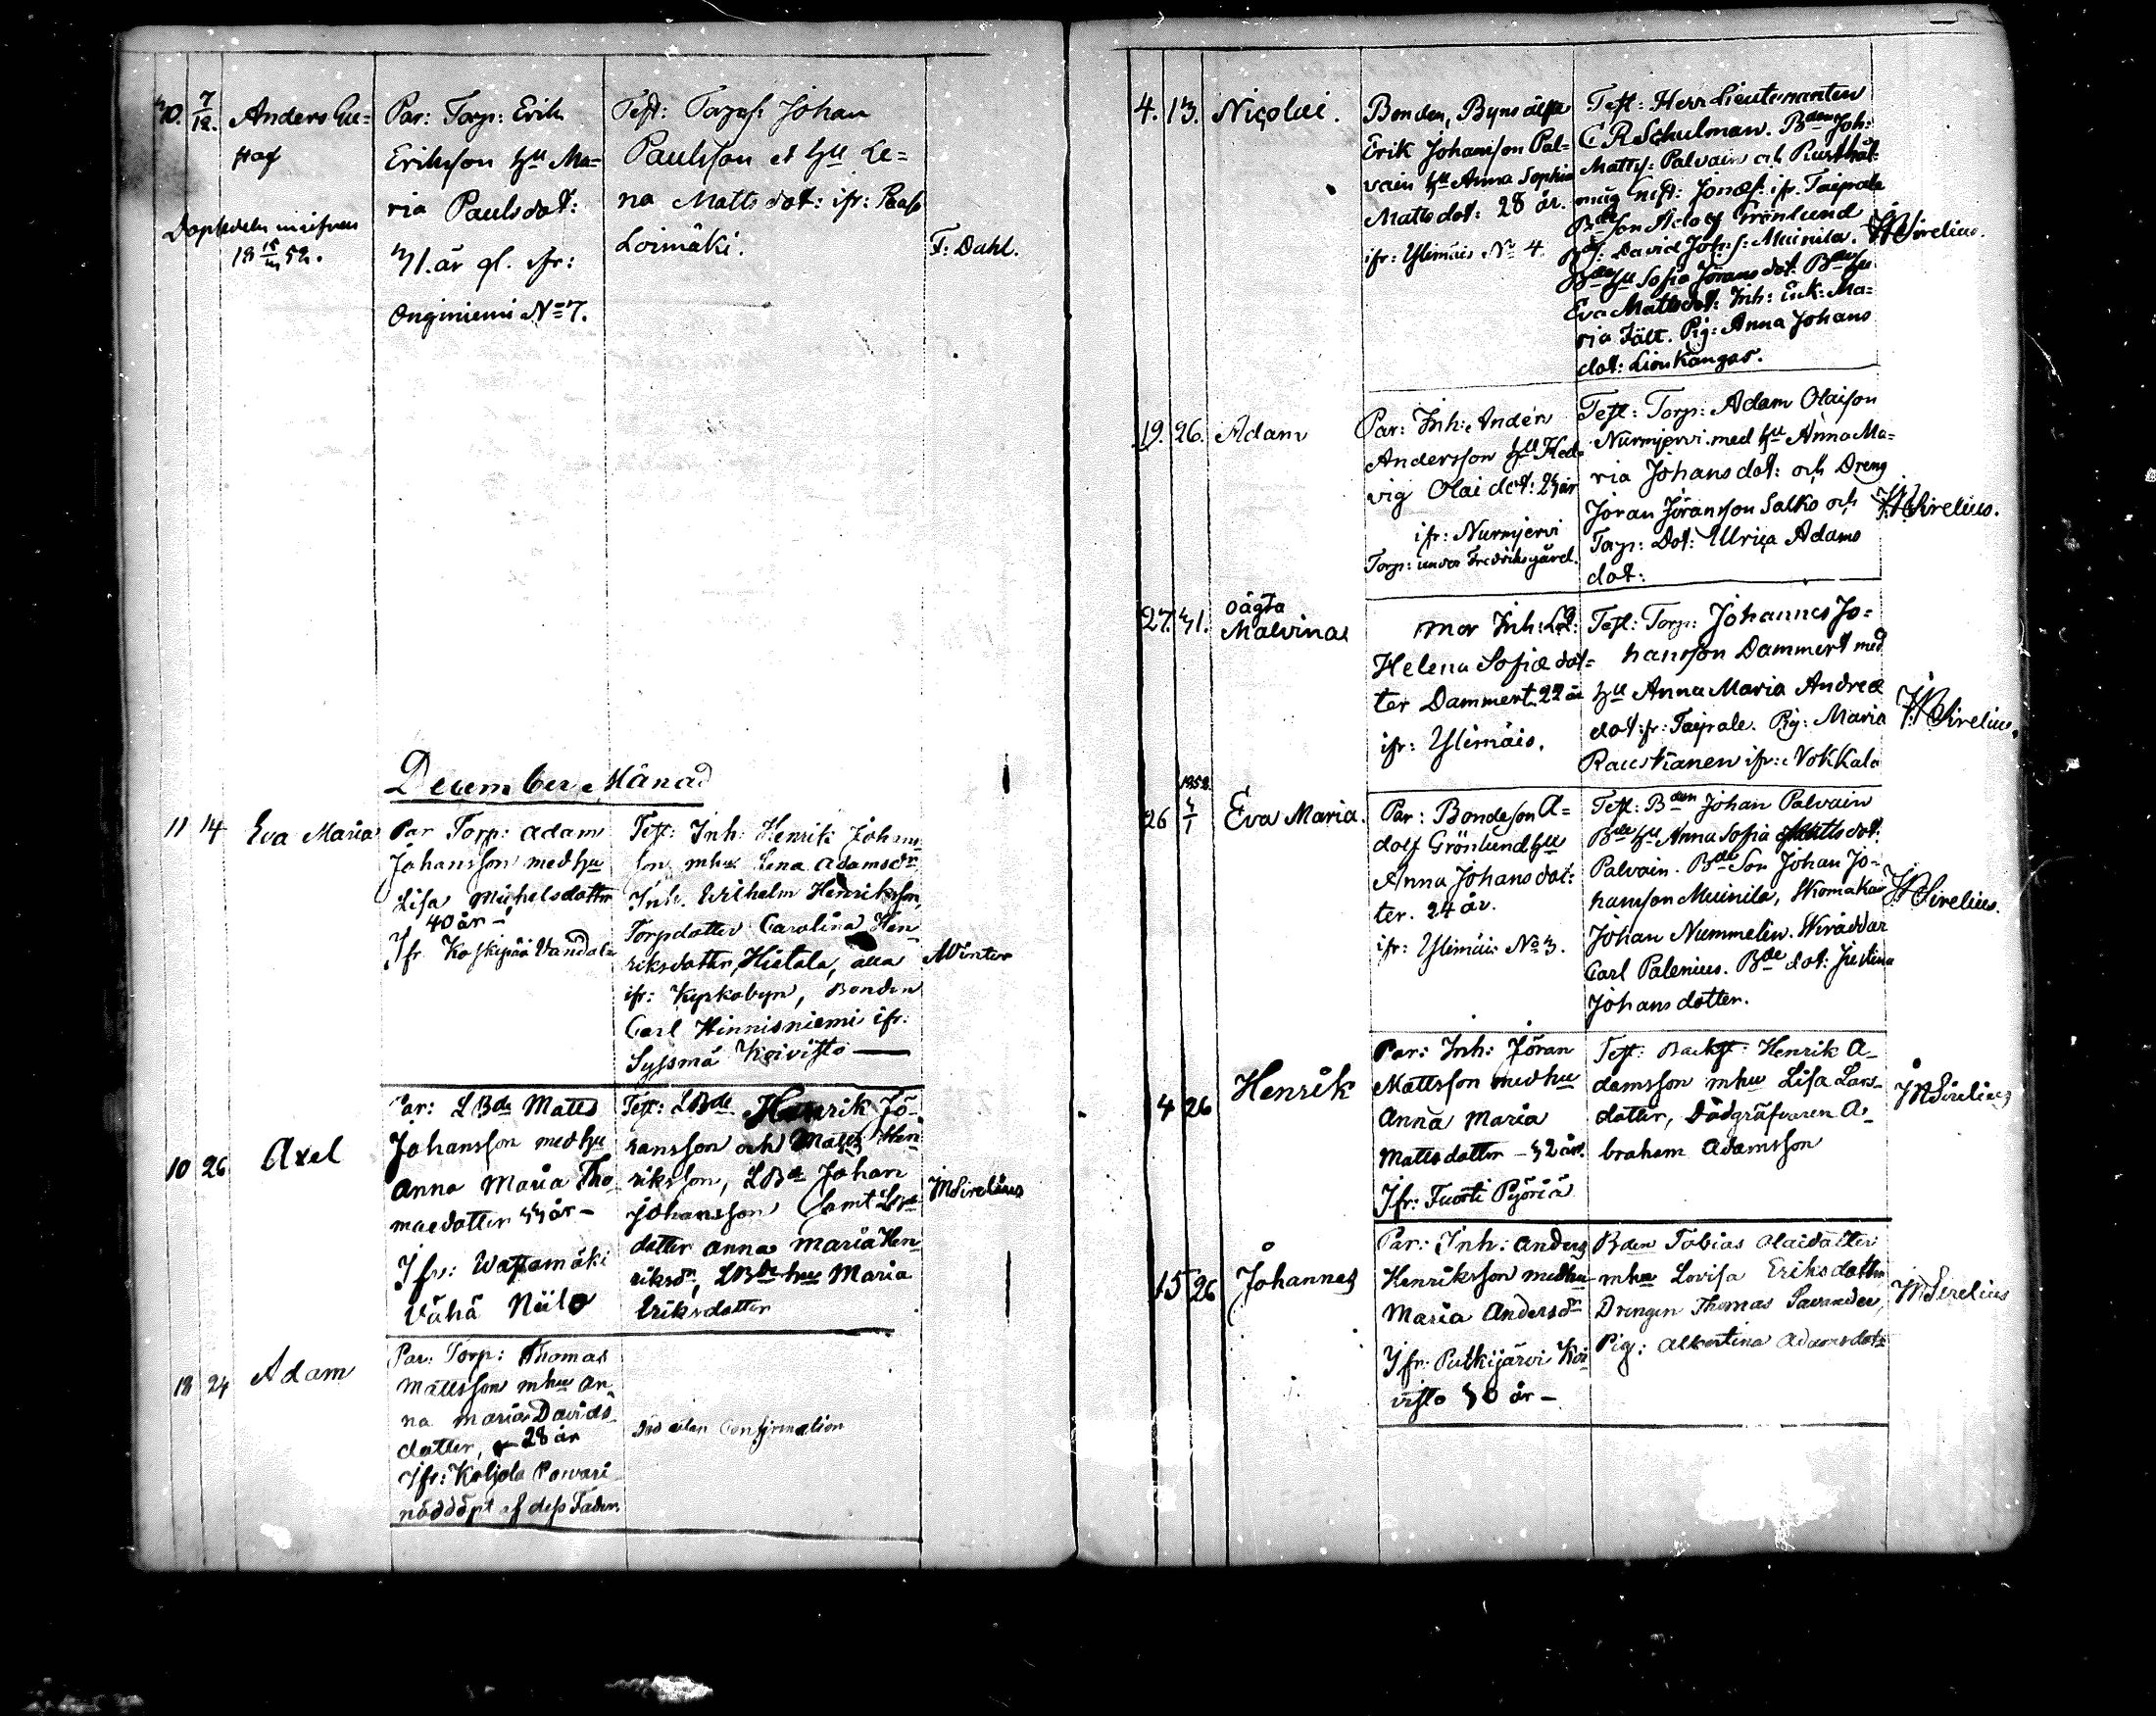 30. 7/12. Anders Gu=
staf
Dopsedeln
18 52.
Par: Torp: Erik
Eriksson hu Ma=
ria Paulsdot:
31. år gl. ifr:
Onginiemi No 7.
Test: Johan
Paulsson et hu Le=
na Mattsdot: ifr:
Loimäki.
F: Dahl.
December Månad
11 14 Eva Maria
Par Torp: Adam
Johansson med hu
Lisa Michelsdotter
40 år –
Ifr Koskipää Vandala
Test: Inh: Henrik Johans
son mhu Lena Adamsdr
Inh. Wilhelm Henriksson,
Torpdotter Carolina Hen
riksdotter, Hietala, alla
ifr: Kyrkobyn, Bonden
Carl Hinnisniemi ifr:
Syssmä Koivisto —
Winter
10 26 Axel
Par: LBde Matts
Johansson med hu
Anna Maria Tho
maedotter 33 år –
Ifr: Watamäki
Vähä Niilo
Test: LBde Henrik Jö-
ransson och Matts Hen
riksson, LBde Johan
Johansson samt LBde
dotter Anna Maria Hen
riksdr, LBde hu Maria
Eriksdotter
Sirelius
18 24 Adam
Par: Torp: Thomas
Mattsson mhu An
na Maria Davids
dotter, 28 år
Ifr: Koljola Porvari
nöddöpt af dess Fader
död utan Confirmation
4. 13. Nicolai.
Bonden, Byns älste
Erik Johansson Pal=
vain hu Anna Sophia
Mattsdot: 28 år.
ifr: Ylimäis No 4.
Test: Herr Lieutenanten
C R Schulman. Bden Joh:
Matts: Palvain och Rusthål
ifr. Taipale
Bde Son Adolf Grönlund
David Joh: s: Muinila.
Bde hu Sofia Jöransdot. Bde hu
Eva Mattsdot: Inh: Enk: Ma=
ria Fält. Pig: Anna Johans
dot: Lionkangas.
Sirelius.
19. 26. Adam
Par: Inh: Anders
Andersson hu Hed=
vig Olaidot: 23 år
ifr: Nurmjervi
Torp: under Fredriksgård.
Test: Torp: Adam Olaisson
Nurmjervi med hu Anna Ma=
ria Johansdot: och Dreng
Jöran Jöransson Salko och
Torp: Dot: Ulrica Adams
dot:
Sirelius.
27. 31. oägta
Malvina
mor Inh:
Helena Sofia dot=
ter Dammert. 22 år
ifr: Ylimäis.
Test: Torp: Johannes Jo=
hansson Dammert med
hu Anna Maria Andreæ
dot: fr: Taipale. Pig: Maria
Rauskanen ifr: Nokkala
Sirelius.
1852.
26 3/1 Eva Maria.
Par: Bondeson A=
dolf Grönlund hu
Anna Johansdot:
ter. 24 år.
ifr: Ylimäis No 3.
Test: Bden Johan Palvain
Bde hu Anna Sofia Mattsdot:
Palvain. Bde Son Johan Jo=
hansson Muinila, Skomakar
Johan Nummelin. Skräddar
Carl Palenius. Bde dot: Justina
Johansdotter.
Sirelius.
4 26 Henrik
Par: Inh: Jöran
Mattsson med hu
Anna Maria
Mattsdotter – 32 år
Ifr: Tuorti Pyöriä
Test: Backst: Henrik A-
damsson mhu Lisa Lars-
dotter, Dödgräfvaren A-
braham Adamsson
Sirelius
15 26 Johannes
Par: Inh: Anders
Henriksson med hu
Maria Andersdr
Ifr: Putkijärvi Koi
visto 30 år –
Bden Tobias Olaidotter
mhu Lovisa Eriksdotter
Drengen Thomas Savander,
Pig: Albertina Adamsdotr
Sirelius